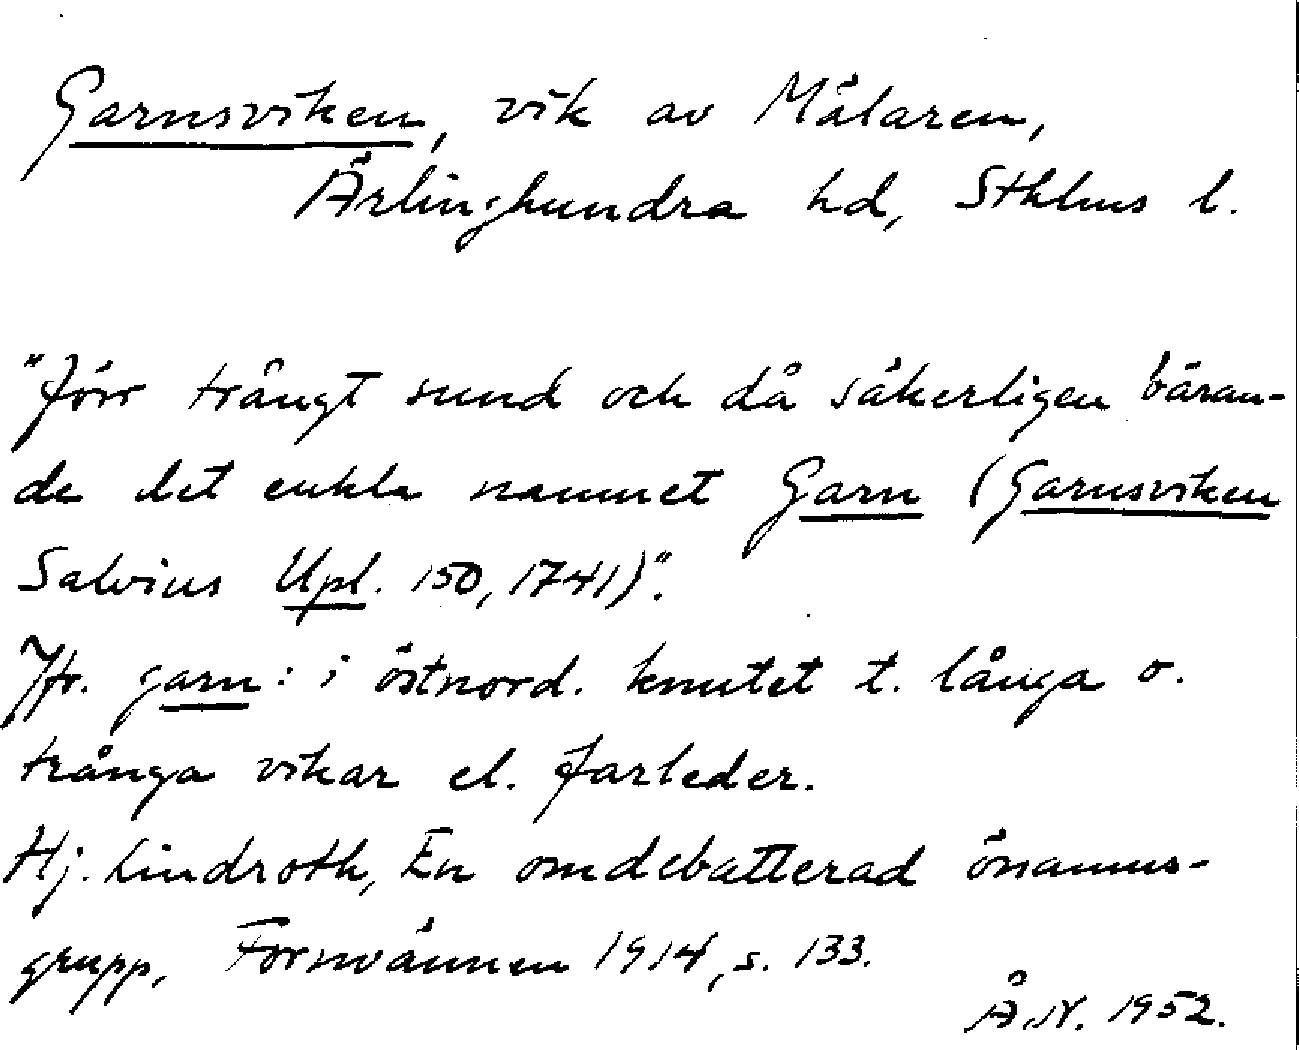 Garnsviken, vik av Mälaren,
Ärlinghundra hd, Sthlms l.
"Förr trångt sund och då säkerligen båran-
de det enkla namnet Garn (Garnsviken
Salvius Upl. 150, 1741)".
Jfr. garn: i östnord. knutet t. långa o.
trånga vikar el. farleder.
Hj. Lindroth, En omdebatterad önamns-
grupp, Fornvännen 1914, s. 133.
Å.N. 1952.